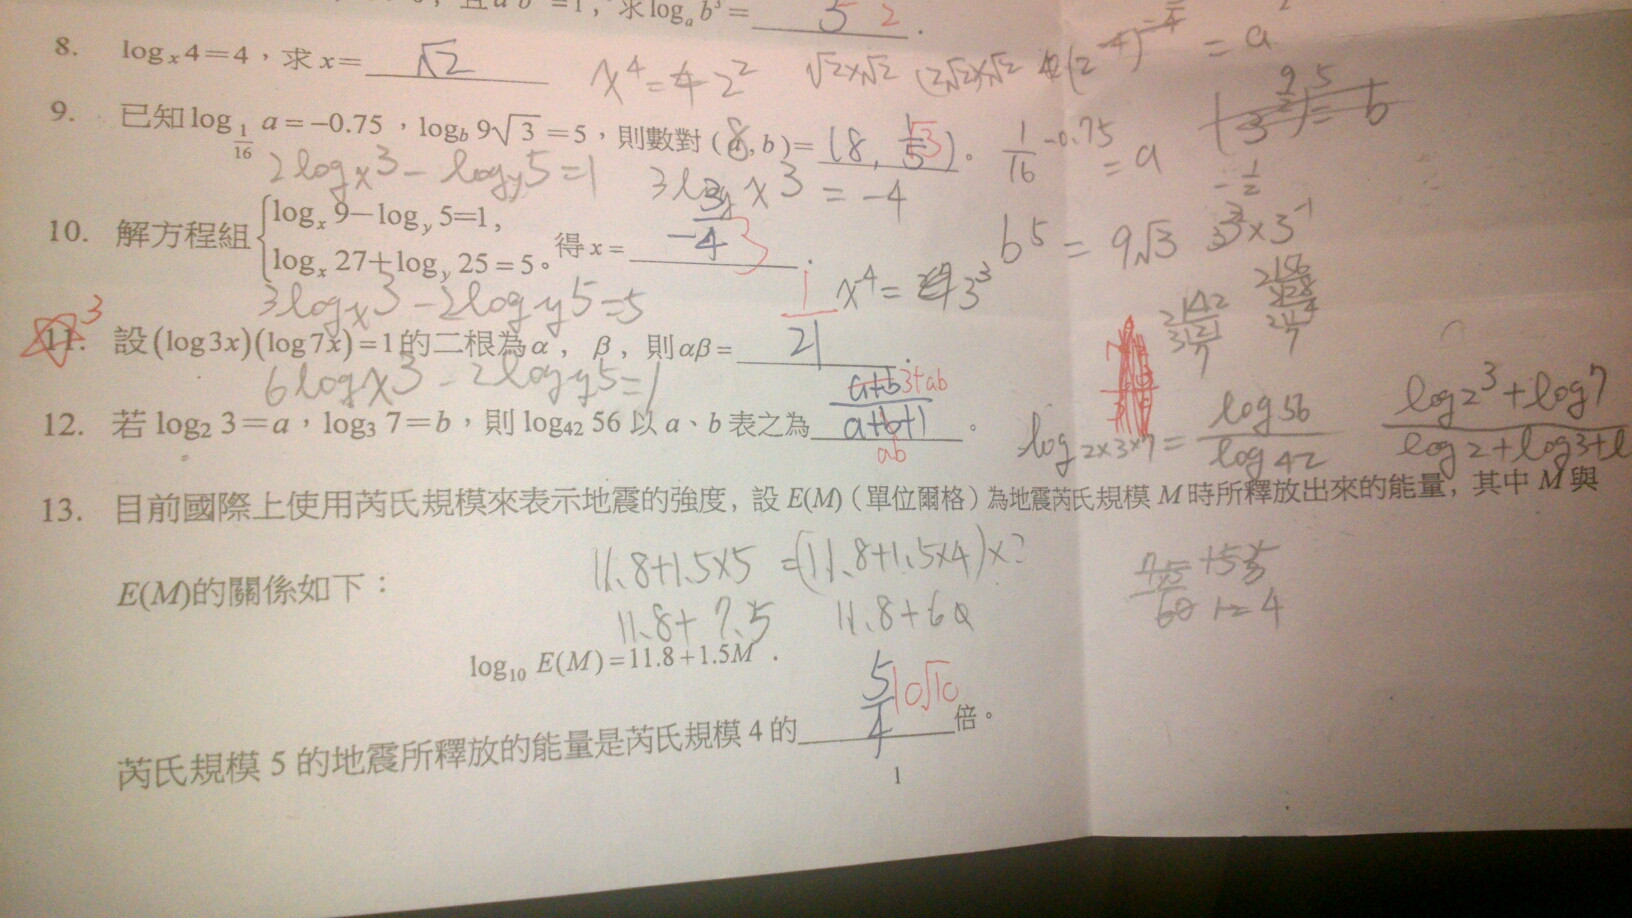 求 logₐ b³ = 5 2 .
8. logₓ 4 = 4，求 x = √2
x⁴ = 4 2²
√2×√2
= a
9. 已知 log_{1/16} a = −0.75，log_b 9√3 = 5，則數對 (a, b) = (8, √3)。
1/16 ^-0.75 = a
2logₓ3 − log_y5 = 1
= −4
10. 解方程組 { logₓ 9 − log_y 5 = 1, logₓ 27 + log_y 25 = 5。 得 x = 3/−4 3 .
b⁵ = 9√3
3³×3⁻¹
3logₓ3 − 2log_y5 = 5
11. 設 (log3x)(log7x) = 1 的二根為 α，β，則 αβ = 1/21 .
6logₓ3 − 2log_y5 = 1
12. 若 log₂ 3 = a，log₃ 7 = b，則 log₄₂ 56 以 a、b 表之為 a+b 3+ab / a+b+1 ab 。
log 2×3×7 = log56 / log42
log2³ + log7 / log2 + log3 + l
13. 目前國際上使用芮氏規模來表示地震的強度，設 E(M)（單位爾格）為地震芮氏規模 M 時所釋放出來的能量，其中 M 與
11.8+1.5×5 = (11.8+1.5×4)×?
E(M)的關係如下：
11.8+7.5 11.8+6
log₁₀ E(M) = 11.8 + 1.5M .
芮氏規模 5 的地震所釋放的能量是芮氏規模 4 的 5/4 10√10 倍。
1